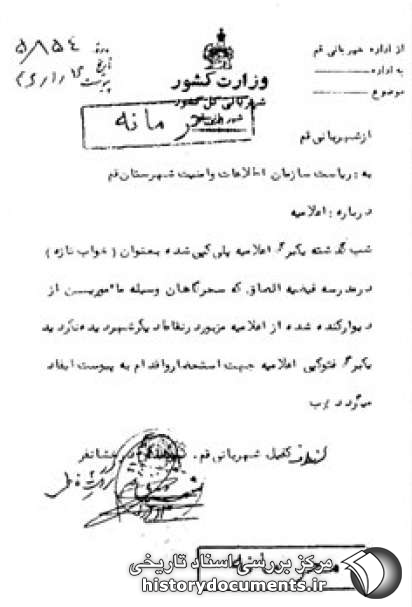 از اداره شهربانی قم
به اداره
موضوع
شماره ۵/۸۵۴
تاریخ
پیوست
وزارت کشور
شهربانی کل کشور
محرمانه
از شهربانی قم
به : ریاست سازمان اطلاعات و امنیت شهرستان قم
درباره : اعلامیه
شب گذشته یکبرگ اعلامیه پلی کپی شده بعنوان ( خواب تازه )
در مدرسه فیضیه الصاق که سحرگاهان وسیله مامورین از
دیوار کنده شده از اعلامیه مزبور در نقاط دیگر شهر دیده نگردید
یکبرگ فتوکپی اعلامیه جهت استحضار و اقدام به پیوست ایفاد
میگردد
کفیل شهربانی قم
مرکز بررسی اسناد تاریخی
historydocuments.ir